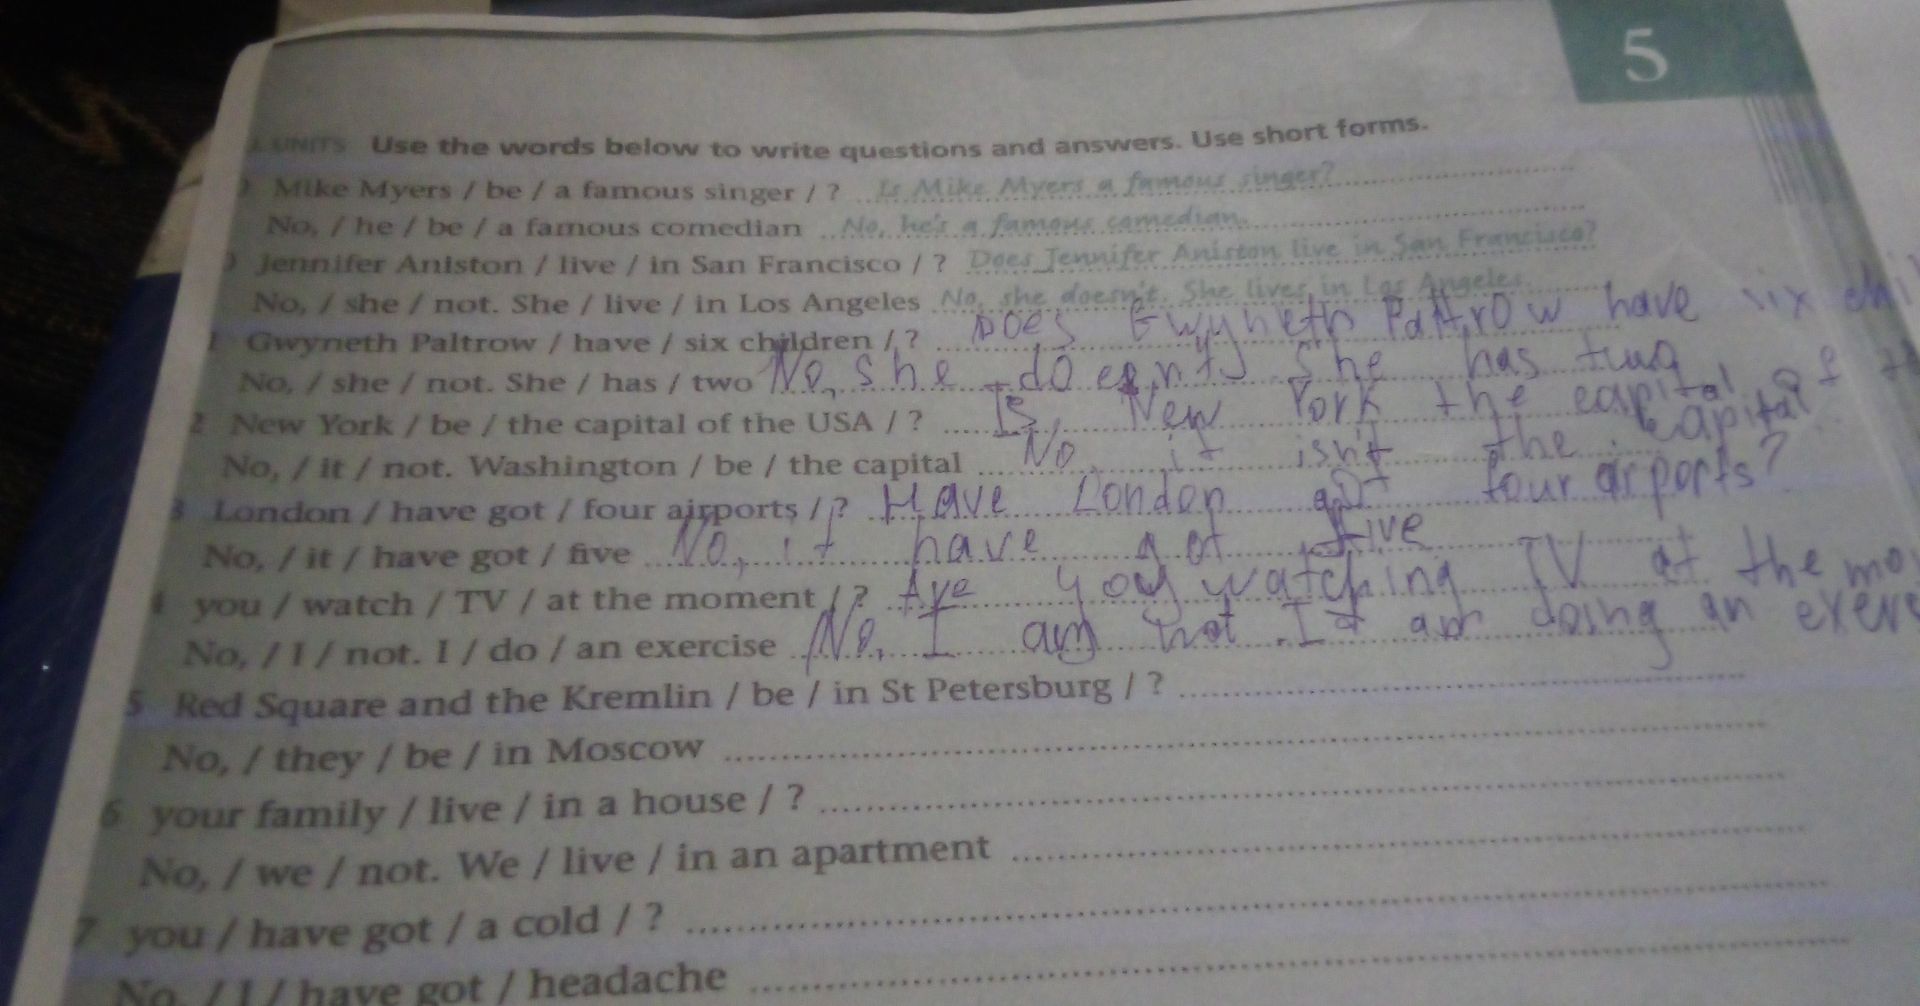 5
UNITS Use the words below to write questions and answers. Use short forms.
Mike Myers / be / a famous singer / ? Is Mike Myers a famous singer?
No, / he / be / a famous comedian No, he's a famous comedian.
Jennifer Aniston / live / in San Francisco / ? Does Jennifer Aniston live in San Francisco?
No, / she / not. She / live / in Los Angeles No, she doesn't. She lives in Los Angeles.
1 Gwyneth Paltrow / have / six children / ? Does Gwyneth Paltrow have six chil
No, / she / not. She / has / two No, she doesn't she has two
2 New York / be / the capital of the USA / ? Is New York the capital of
No, / it / not. Washington / be / the capital No it isn't the capital
3 London / have got / four airports / ? Have London got four airports?
No, / it / have got / five No, it have got five
4 you / watch / TV / at the moment / ? Are you watching TV at the mo
No, / I / not. I / do / an exercise No, I am not. I am doing an exer
5 Red Square and the Kremlin / be / in St Petersburg / ?
No, / they / be / in Moscow
6 your family / live / in a house / ?
No, / we / not. We / live / in an apartment
7 you / have got / a cold / ?
No, / I / have got / headache